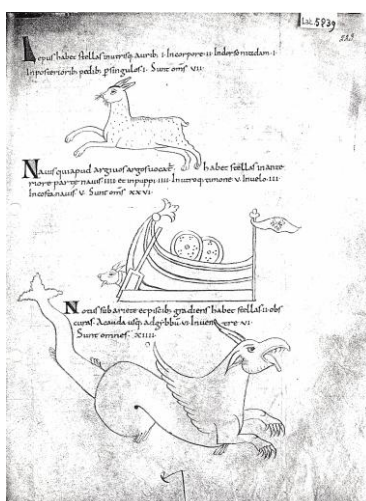 Lat. 5839
223
Lepus habet stellas inversq; aurib; I· In corpore· II· In dorso
In posteriorib; pedib; p singulos· I· Sunt oms VII·
Navis qui apud argivos argos vocat habet stellas in ante
riore parte navis· IIII et in puppi· IIII· In utroq; timone· V· In velo· III·
In costa navis· V· Sunt oms XXVI·
Notus sub ariete et piscib; gradiens habet stellas· II· obs
curas· A cauda usq; ad gibbu· VI· In ventre· VI·
Sunt omnes· XIIII·